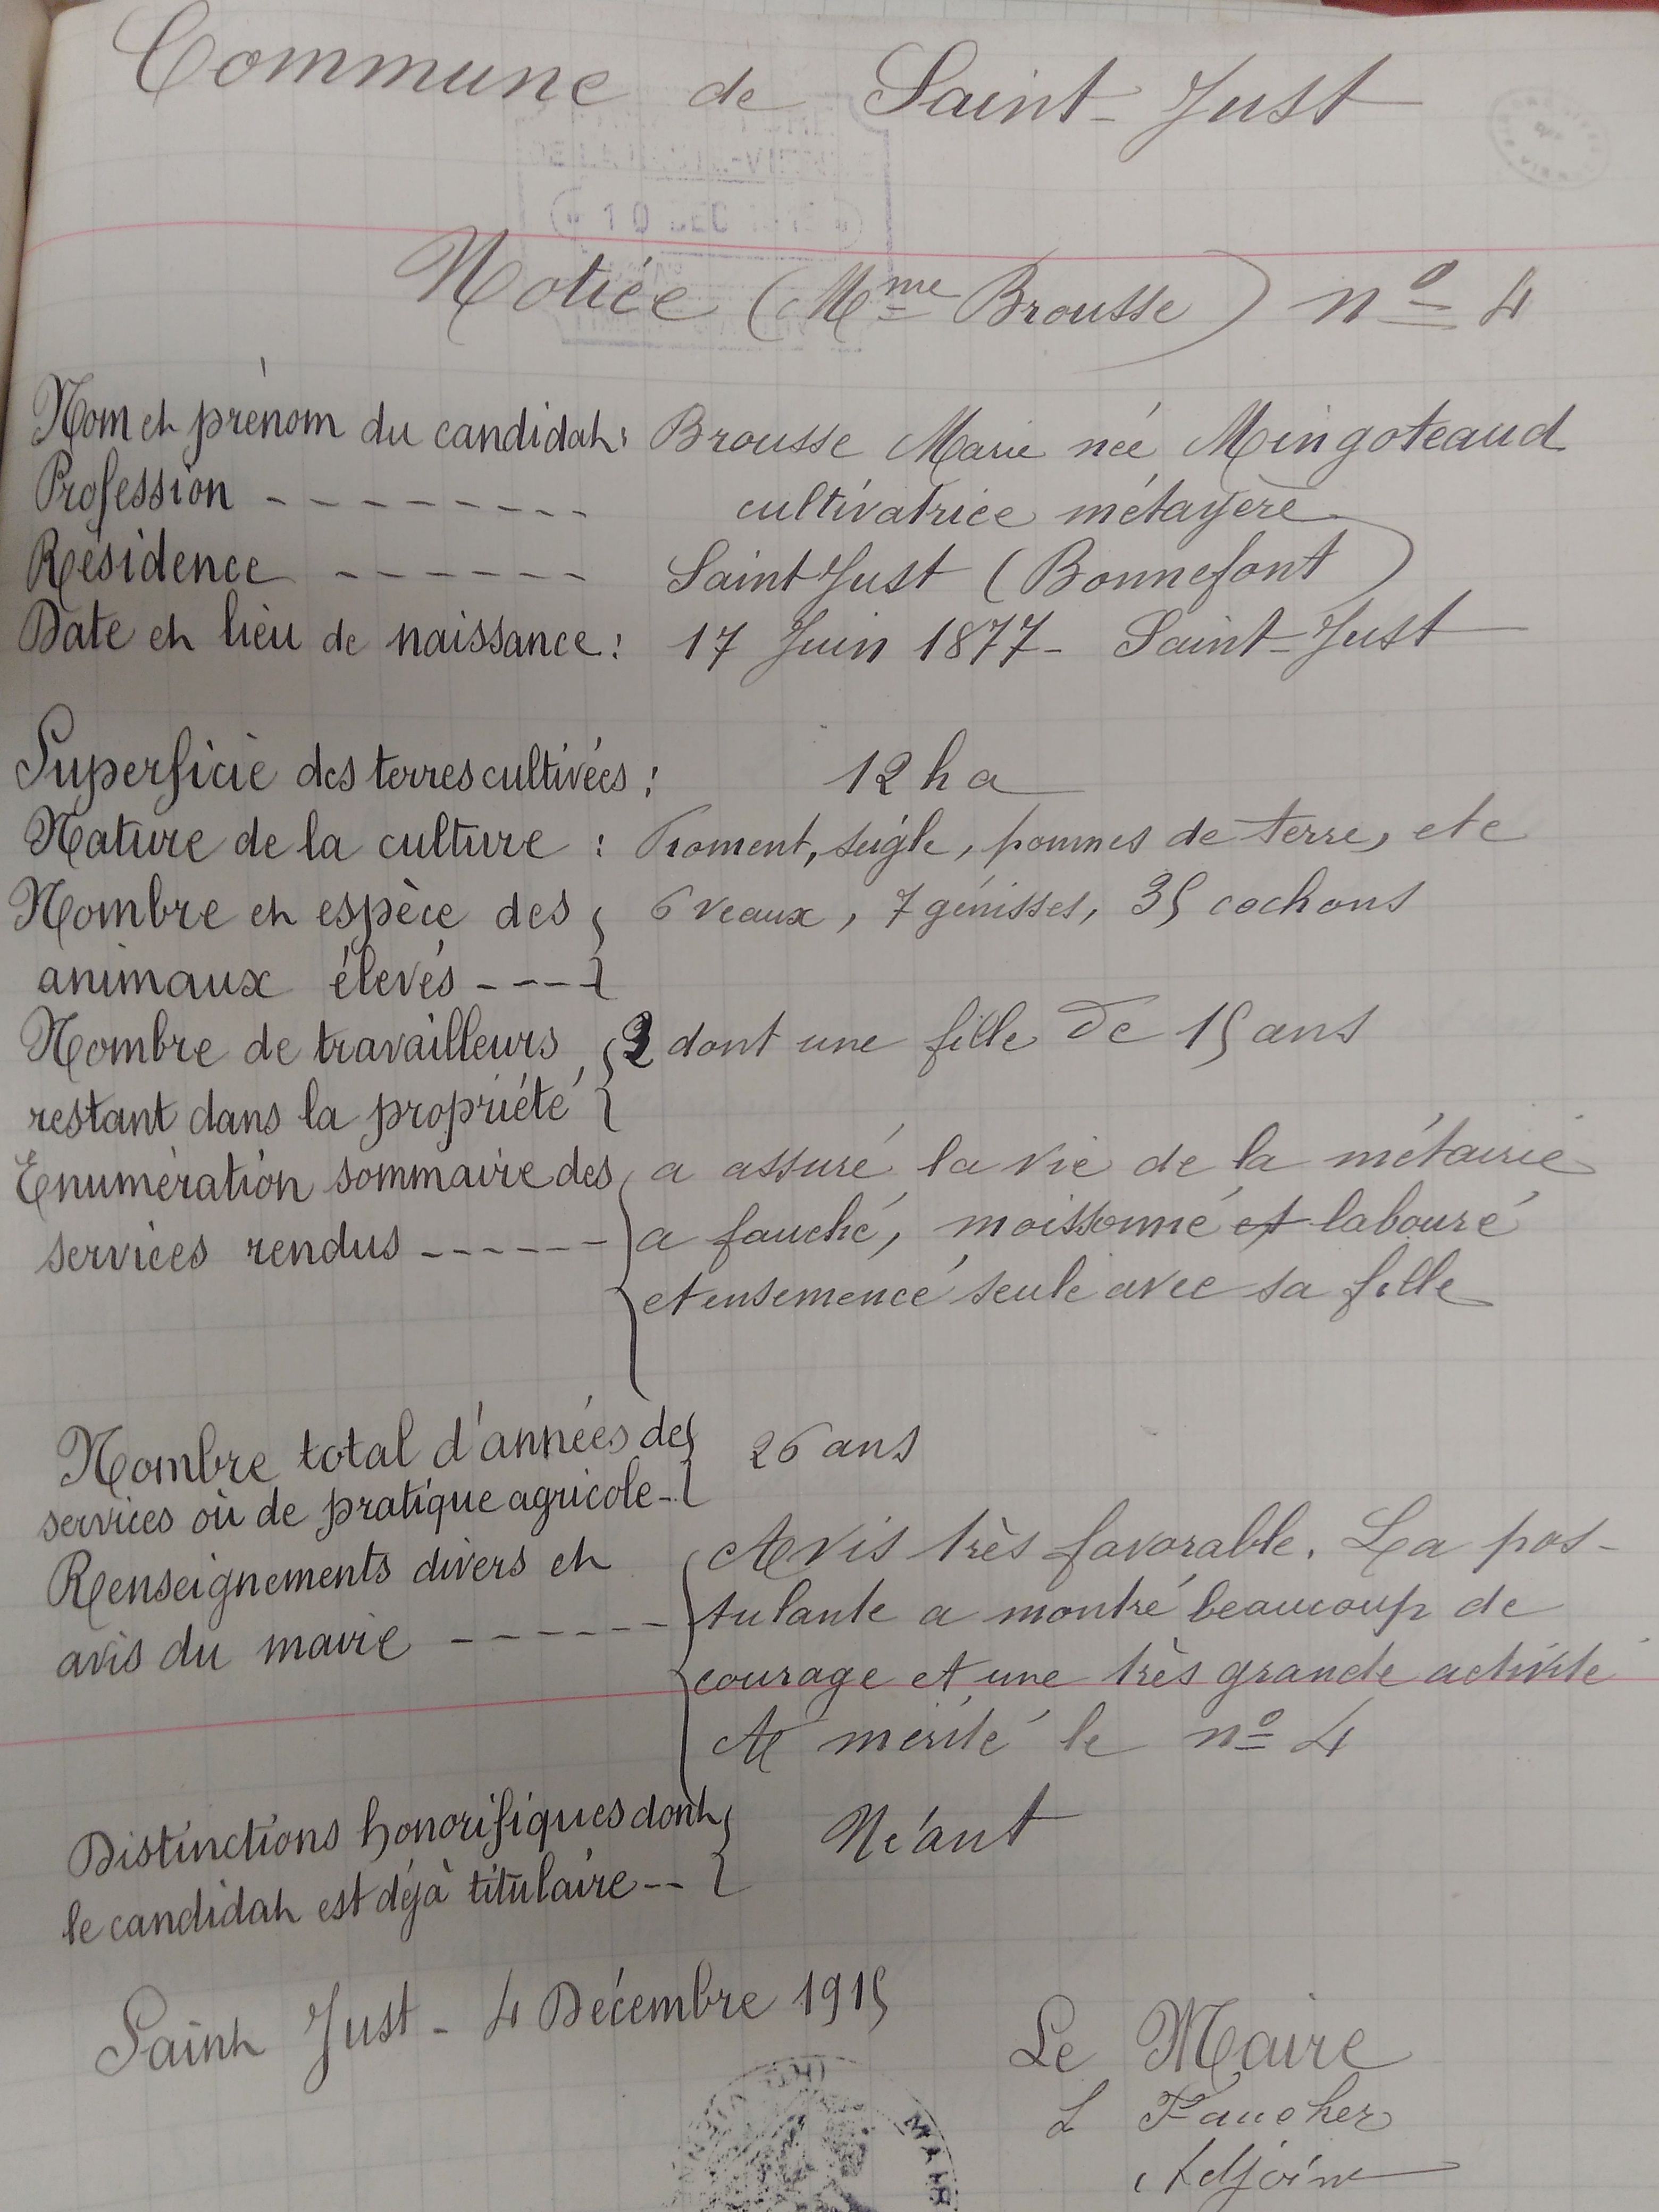 Commune de Saint-Just
Notice (Mme Brousse) no 4
Nom et prénom du candidat: Brousse Marie née Mingoteaud
Profession - - - - - - - - - cultivatrice métayère
Résidence - - - - - - Saint Just (Bonnefont)
Date et lieu de naissance: 17 Juin 1877 - Saint-Just
Superficie des terres cultivées: 12 ha
Nature de la culture : Froment, seigle, pommes de terre, etc
Nombre et espèce des 6 veaux, 7 génisses, 35 cochons
animaux élevés - - - -
Nombre de travailleurs 2 dont une fille de 15 ans
restant dans la propriété
Enumération sommaire des a assuré la vie de la métairie
services rendus - - - - - - a fauché, moissonné et labouré
et ensemencé seule avec sa fille
Nombre total d'années de 26 ans
services où de pratique agricole -
Renseignements divers et Avis très favorable. La pos-
avis du maire - - - - - - tulante a montré beaucoup de
courage et une très grande activité
A mérité le no 4
Distinctions honorifiques dont Néant
le candidat est déjà titulaire - -
Saint Just - 4 Décembre 1915
Le Maire
L Faucher
Adjoint